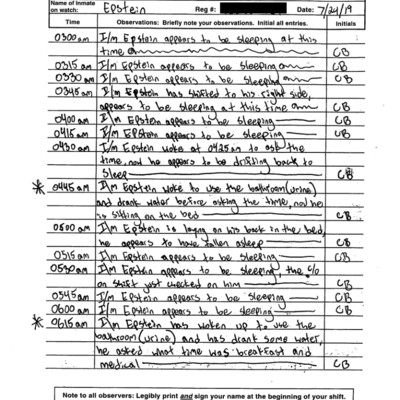 Name of Inmate
on watch: Epstein Reg #: Date: 7/24/19
Time Observations: Briefly note your observations. Initial all entries. Initials
0300am I/m Epstein appears to be sleeping at this
time CB
0315am I/m Epstein appears to be sleeping CB
0330am I/m Epstein appears to be sleeping CB
0345am I/m Epstein has shifted to his right side,
appears to be sleeping at this time CB
0400am I/m Epstein appears to be sleeping CB
0415am I/m Epstein appears to be sleeping CB
0430am I/m Epstein woke at 0425am to ask the
time, now he appears to be drifting back to
sleep CB
* 0445am I/m Epstein woke to use the bathroom (urine)
and drank water before asking the time, now he
is sitting on the bed CB
0500am I/m Epstein is laying on his back in the bed,
he appears to have fallen asleep CB
0515am I/m Epstein appears to be sleeping CB
0530am I/m Epstein appears to be sleeping, the c/o
on shift just checked on him CB
0545am I/m Epstein appears to be sleeping CB
0600am I/m Epstein appears to be sleeping CB
* 0615am I/m Epstein has woken up to use the
bathroom (urine) and has drank some water,
he asked what time was breakfast and
medical CB
Note to all observers: Legibly print and sign your name at the beginning of your shift.